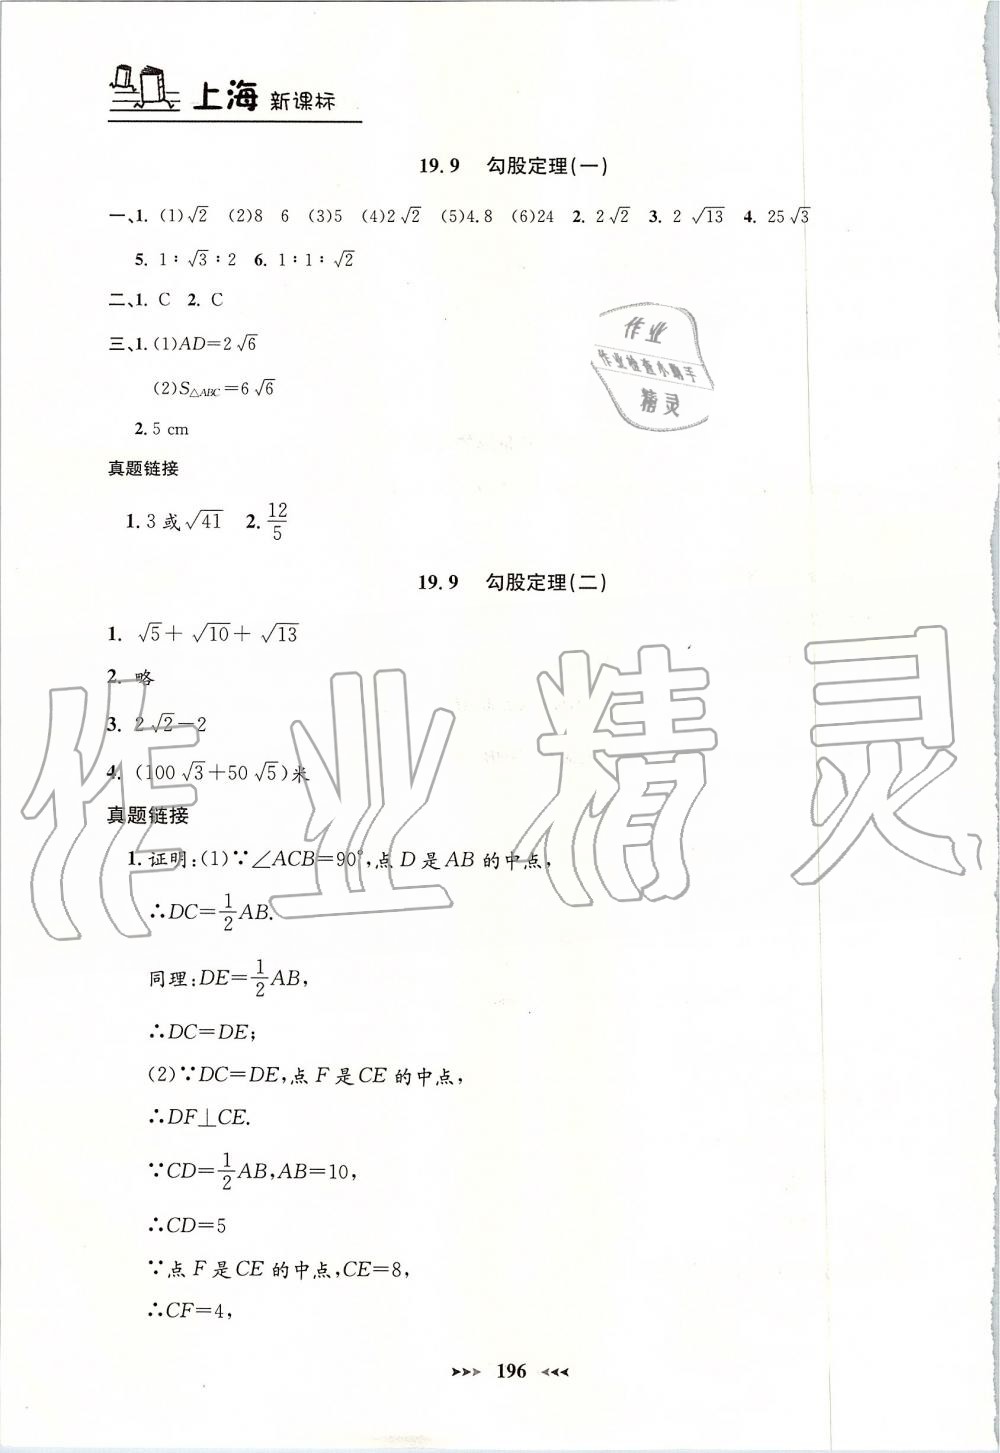 上海 新课标
19.9 勾股定理(一)
一、1. (1)√2 (2)8 6 (3)5 (4)2√2 (5)4.8 (6)24 2. 2√2 3. 2√13 4. 25√3
5. 1∶√3∶2 6. 1∶1∶√2
二、1. C 2. C
三、1. (1)AD=2√6
(2)S△ABC=6√6
2. 5 cm
真题链接
1. 3或√41 2. 12/5
19.9 勾股定理(二)
1. √5+√10+√13
2. 略
3. 2√2-2
4. (100√3+50√5)米
真题链接
1. 证明:(1)∵∠ACB=90°,点D是AB的中点,
∴DC=1/2AB.
同理:DE=1/2AB,
∴DC=DE;
(2)∵DC=DE,点F是CE的中点,
∴DF⊥CE.
∵CD=1/2AB,AB=10,
∴CD=5
∵点F是CE的中点,CE=8,
∴CF=4,
196
作业
作业检查小助手
精灵
作业精灵